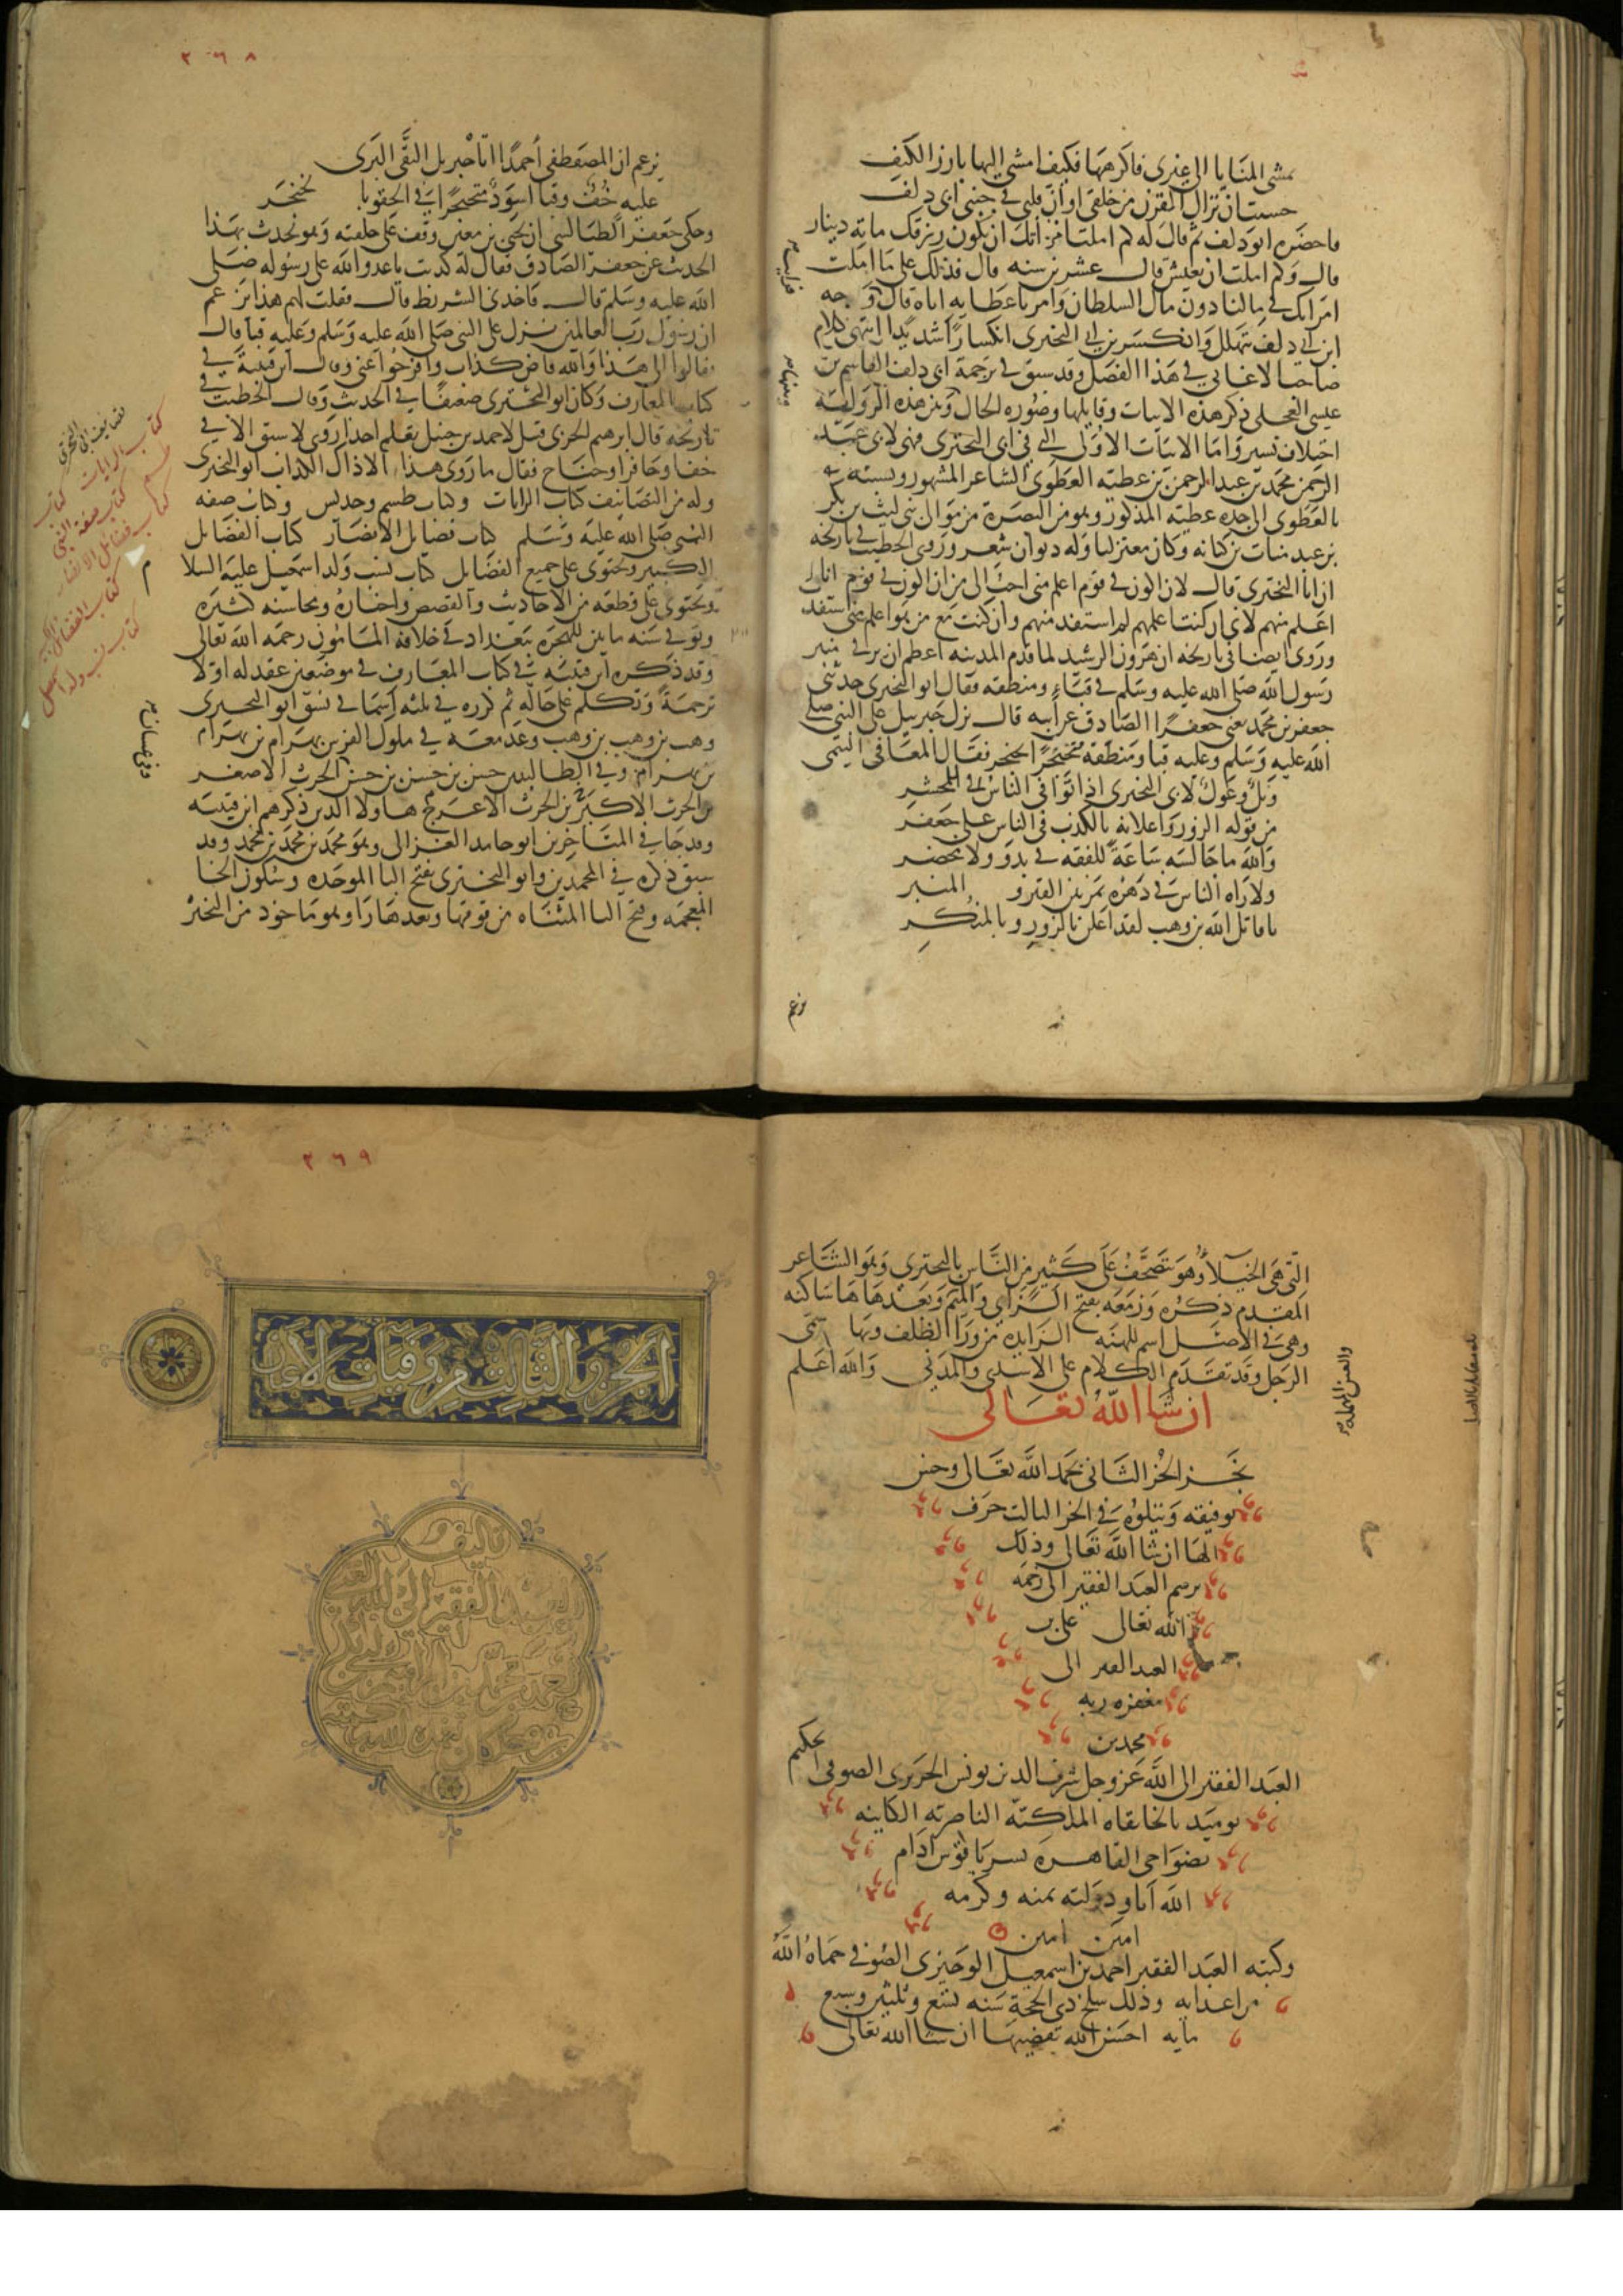 تمشى المنايا الى غيرى فاكرهها فكيف امشى اليها بارز الكتف
حسبت ان نزال القرن من خلقى او ان قلبى فى جنبى ابى دلف
فاحضره ابو دلف ثم قال له كم املت من اتك ان يكون رزقك مايه دينار
قال وكم املت ان تعيش قال عشرين سنه قال فذلك على ما املت
امراتك فى مالنا دون مال السلطان وامر باعطايه اياه قال وجه
ابى دلف يتهلل وانكسر بن ابى البخترى انكسارا شديدا انتهى كلام
صاحب الاغانى فى هذا الفصل وقد سبق فى ترجمة ابى دلف القاسم بن
عيسى العجلى ذكر هذه الابيات وقايلها وصوره الحال وبين هذه الروايه
اختلاف يسير واما الابيات الاولى التى فى ابى البخترى فهى لابى عبد
الرحمن محمد بن عبد الرحمن بن عطيه العطوى الشاعر المشهور ونسبته
بالعطوى الى جده عطيه المذكور وهو من البصرة من موالى بنى ليث بن بكر
بن عبد مناة بن كنانه وكان معتزليا وله ديوان شعر وروى الخطيب فى تاريخه
ان ابا البخترى قال لان اكون فى قوم اعلم منى احب الى من ان اكون فى قوم انا
اعلم منهم لانى ان كنت اعلمهم لم استفد منهم وان كنت مع من هو اعلم منى استفدت
وروى ايضا فى تاريخه ان هرون الرشيد لما قدم المدينه اعظم ان يرقى منبر
رسول الله صلى الله عليه وسلم فى قباء ومنطقه فقال ابو البخترى حدثنى
جعفر بن محمد يعنى جعفرا الصادق عن ابيه قال نزل جبريل على النبى صلى
الله عليه وسلم وعليه قبا ومنطقه متخنجرا بخنجر فقال المعافى التيمى
ويل وعول لابى البخترى اذا توافى الناس للمحشر
من قوله الزور واعلانه بالكذب فى الناس على جعفر
والله ما جالسه ساعة للفقه فى بدو ولا محضر
ولا راه الناس فى دهره يمر بين القبر والمنبر
يا قاتل الله بن وهب لقد اعلن بالزور وبالمنكر
يزعم
٢٦٨
يزعم ان المصطفى احمدا اتاه جبريل التقى البرى
عليه خف وقبا اسود متخنجرا فى الحقو بالخنجر
وحكى جعفر الطيالسى ان يحيى بن معين وقف على حلقته وهو يحدث بهذا
الحديث عن جعفر الصادق فقال له كذبت يا عدو الله على رسوله صلى
الله عليه وسلم قال فاخذنى الشرط قال فقلت لهم هذا يزعم
ان رسول رب العالمين نزل على النبى صلى الله عليه وسلم وعليه قبا قال
فقالوا لى هذا والله قاض كذاب وافرجوا عنى وقال ابن قتيبه فى
كتاب المعارف وكان ابو البخترى ضعيفا فى الحديث وقال الخطيب فى
تاريخه قال ابرهيم الحربى قيل لاحمد بن حنبل تعلم احدا روى لا سبق الا فى
خف او حافر او جناح فقال ما روى هذا الا ذاك الكذاب ابو البخترى
وله من التصانيف كتاب الرايات وكتاب طسم وجديس وكتاب صفه
النبى صلى الله عليه وسلم كتاب فضايل الانصار كتاب الفضايل
الكبير ويحتوى على جميع الفضايل كتاب نسب ولد اسمعيل عليه السلا
ويحتوى على قطعه من الاحاديث والقصص واخباره ومحاسنه كثيره
وتوفى سنه مايتين للهجره ببغداد فى خلافه المامون رحمه الله تعالى
وقد ذكره ابن قتيبه فى كتاب المعارف فى موضعين عقد له اولا
ترجمة وتكلم على حاله ثم كرره فى ثلثه اسما فى نسق ابو البخترى
وهب بن وهب بن وهب وعد معه فى ملوك الفرس بهرام بن بهرام
بن بهرام وفى الطالبيين حسن بن حسن بن حسن الحرث الاصغر
بن الحرث الاكبر بن الحرث الاعرج هاولا الذين ذكرهم ابن قتيبه
وقد جا فى المتاخرين ابو حامد الغزالى وهو محمد بن محمد بن محمد وقد
سبق ذكره فى المحمدين وابو البخترى بفتح البا الموحده وسكون الخا
المعجمه وفتح التا المثناه من فوقها وبعدها را وهو ماخوذ من البختر
وفى غسان
تصانيف ابى البخترى
كتاب الرايات كتاب
طسم كتاب صفة النبى
كتاب فضايل الانصار
كتاب الفضايل
كتاب نسب ولد اسمعيل
التى هى الخيلاء وهو يتصحف على كثير من الناس بالبحترى وهو الشاعر
المقدم ذكره وزمعه بفتح الزاى والميم وبعدها ها ساكنه
وهى فى الاصل اسم للهنه الزايده من ورا الظلف وبها سمى
الرجل وقد تقدم الكلام على الاسدى والمدنى والله اعلم
والعين المهمله
ان شا الله تعالى
نجز الجز الثانى بحمد الله تعالى وحسن
توفيقه ويتلوه فى الجز الثالث حرف
الها ان شا الله تعالى وذلك
برسم العبد الفقير الى رحمه
الله تعالى على بن
العبد الفقير الى
مغفره ربه
محمد بن
العبد الفقير الى الله عز وجل شرف الدين يونس الحريرى الصوفى الحكيم
يوميد بالخانقاه الملكيه الناصريه الكاينه
بضواحى القاهره بسرياقوس ادام
الله ايام دولته بمنه وكرمه
امين امين
وكتبه العبد الفقير احمد بن اسمعيل الوجيزى الصوفى حماه الله
من اعدايه وذلك سلخ ذى الحجة سنه تسع وثلثين وسبع
مايه احسن الله تقضيها ان شا الله تعالى
٢٦٩
الجزء الثالث من وفيات الاعيان
تاليف
العبد الفقير الى الله